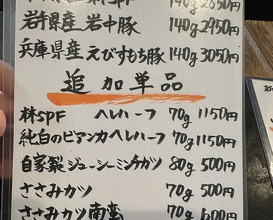 140g 2850円
岩手県産 岩中豚 140g 2950円
兵庫県産 えびすもち豚 140g 3050円
追加単品
林SPF ヘレハーフ 70g 1150円
純白のビアンカヘレハーフ 70g 1150円
自家製ジューシーミンチカツ 80g 500円
ささみカツ 70g 500円
ささみカツ南蛮 70g 600円